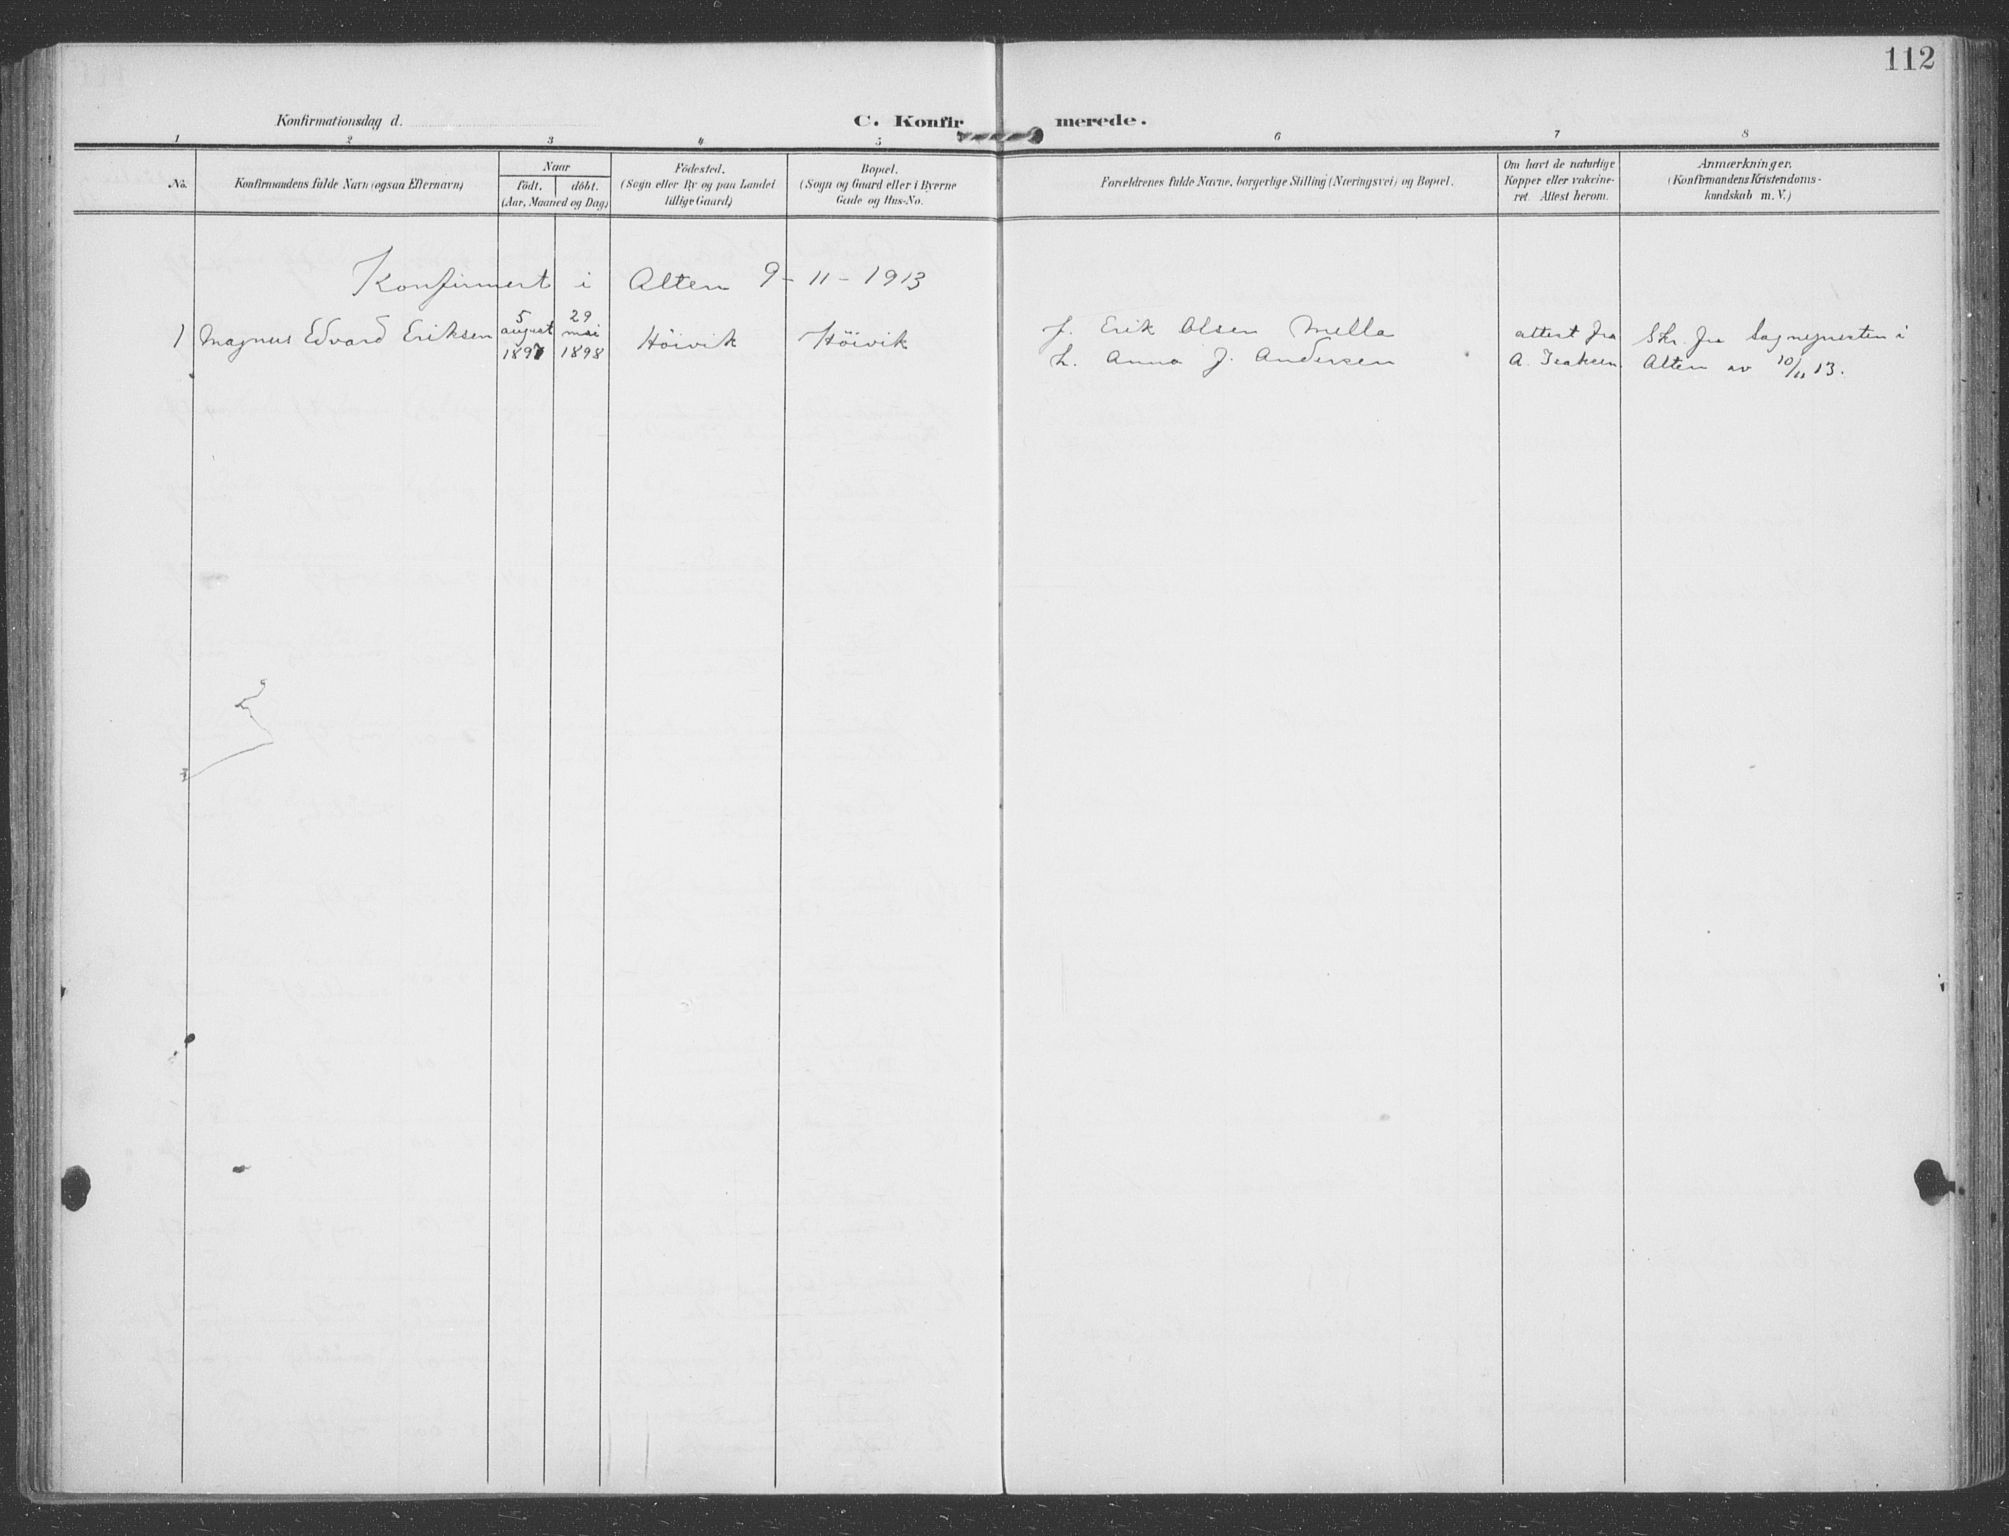 112
Konfirmationsdag d.
C. Konfirmerede.
1 2 3 4 5 6 7 8
No.
Konfirmandens fulde Navn (ogsaa Efternavn)
Naar
födt. döbt.
(Aar, Maaned og Dag)
Födested.
(Sogn eller By og paa Landet
tillige Gaard)
Bopæl.
(Sogn og Gaard eller i Byerne
Gade og Hus-No.
Forældrenes fulde Navne, borgerlige Stilling (Næringsvei) og Bopæl.
Om havt de naturlige
Kopper eller vakcine-
ret. Attest herom.
Anmærkninger.
(Konfirmandens Kristendoms-
kundskab m. V.)
Konfirmert i Alten 9-11-1913
1 Magnus Edvard Eriksen
5
august
1897
29
mai
1898
Höivik
Höivik
f. Erik Olsen Mella
h. Anna J. Andersen
attest fra
A. Isaksen
Skr. fra Sognepresten i
Alten av 10/11 13.